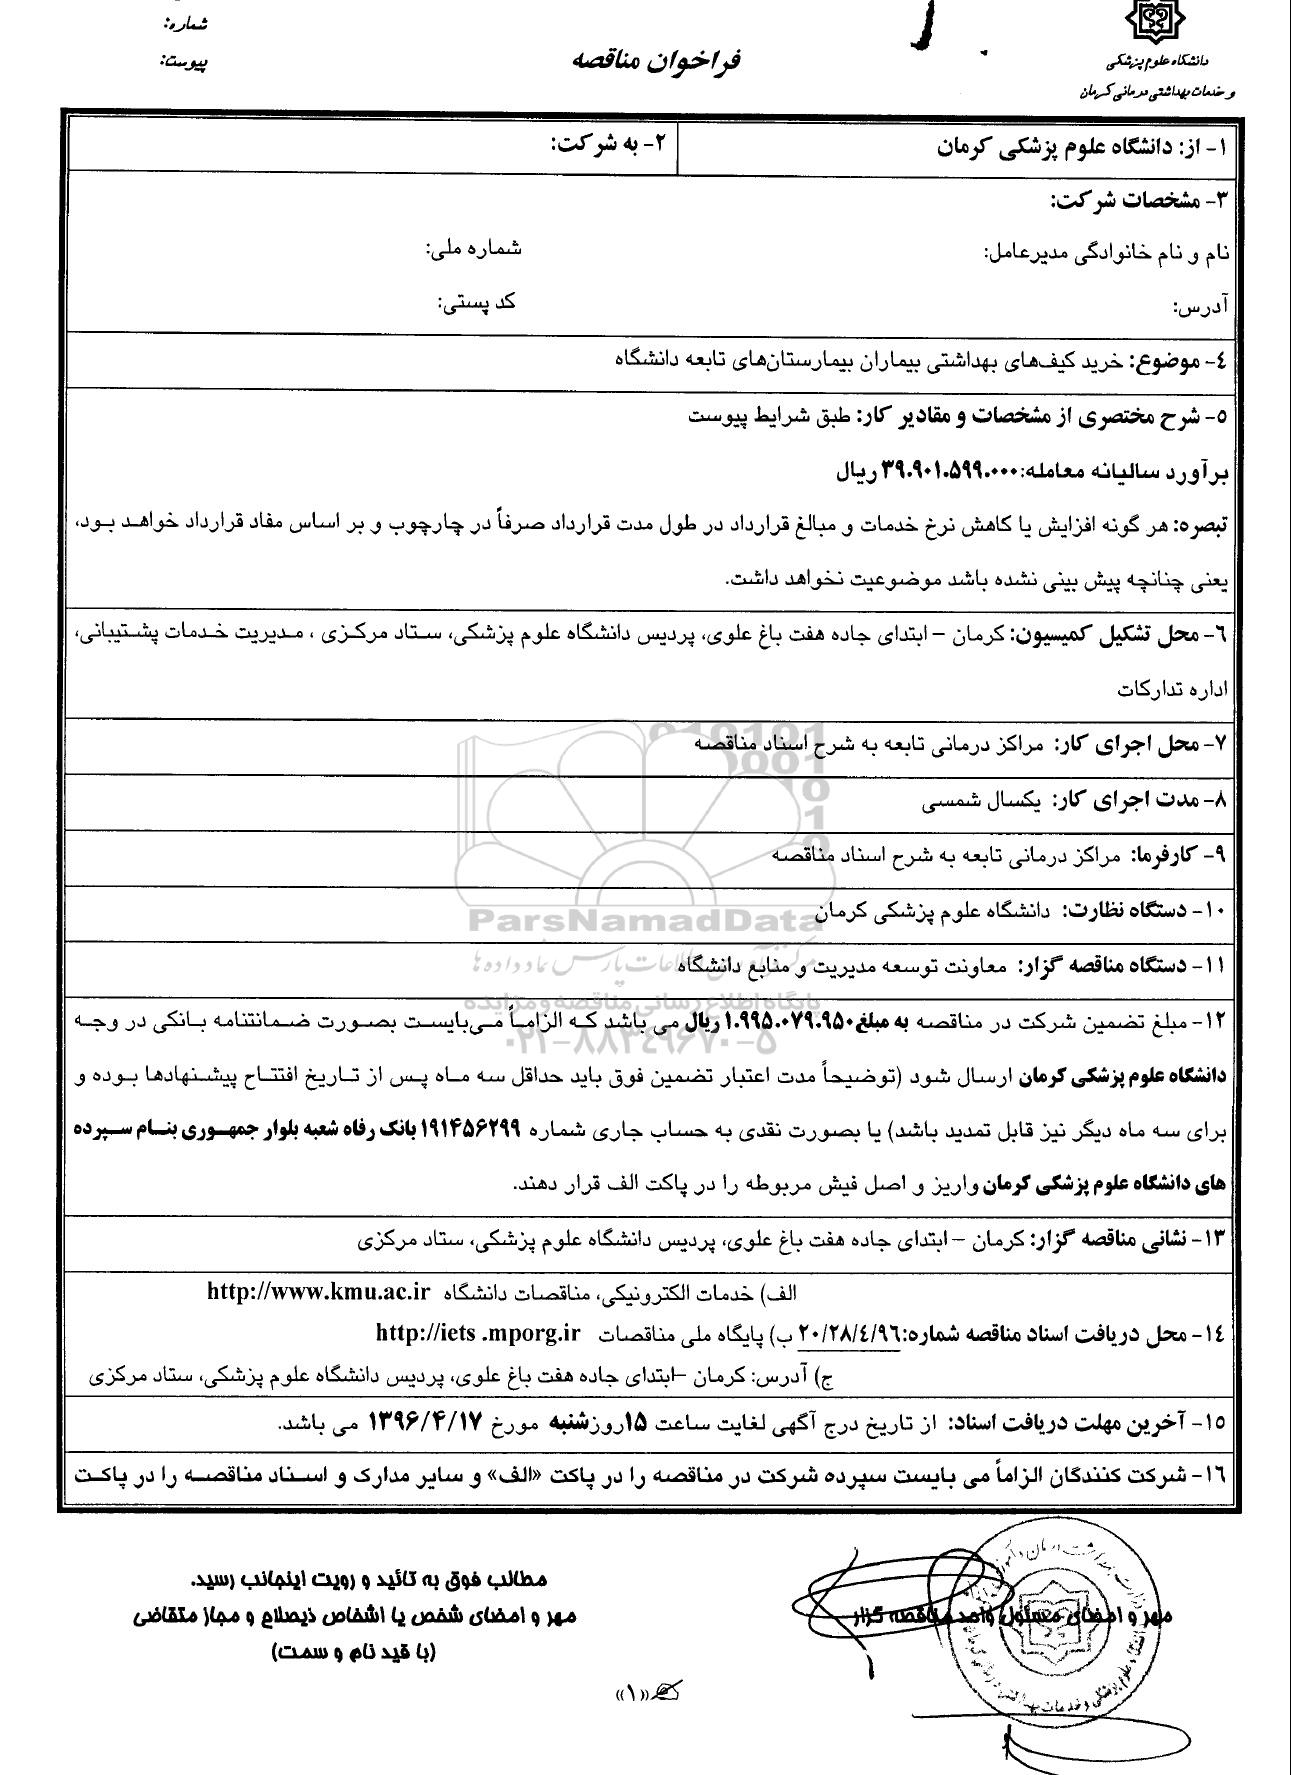 شماره:
پیوست:
فراخوان مناقصه
دانشگاه علوم پزشکی
و خدمات بهداشتی درمانی کرمان
۱- از: دانشگاه علوم پزشکی کرمان
۲- به شرکت:
۳- مشخصات شرکت:
نام و نام خانوادگی مدیرعامل: شماره ملی:
آدرس: کد پستی:
۴- موضوع: خرید کیف‌های بهداشتی بیماران بیمارستان‌های تابعه دانشگاه
۵- شرح مختصری از مشخصات و مقادیر کار: طبق شرایط پیوست
برآورد سالیانه معامله:۳۹.۹۰۱.۵۹۹.۰۰۰ ریال
تبصره: هر گونه افزایش یا کاهش نرخ خدمات و مبالغ قرارداد در طول مدت قرارداد صرفاً در چارچوب و بر اساس مفاد قرارداد خواهد بود،
یعنی چنانچه پیش بینی نشده باشد موضوعیت نخواهد داشت.
۶- محل تشکیل کمیسیون: کرمان – ابتدای جاده هفت باغ علوی، پردیس دانشگاه علوم پزشکی، ستاد مرکزی ، مدیریت خدمات پشتیبانی،
اداره تدارکات
۷- محل اجرای کار: مراکز درمانی تابعه به شرح اسناد مناقصه
۸- مدت اجرای کار: یکسال شمسی
۹- کارفرما: مراکز درمانی تابعه به شرح اسناد مناقصه
۱۰- دستگاه نظارت: دانشگاه علوم پزشکی کرمان
ParsNamadData
۱۱- دستگاه مناقصه گزار: معاونت توسعه مدیریت و منابع دانشگاه
پایگاه اطلاع رسانی مناقصه و مزایده
۱۲- مبلغ تضمین شرکت در مناقصه به مبلغ۱.۹۹۵.۰۷۹.۹۵۰ ریال می باشد که الزاماً می‌بایست بصورت ضمانتنامه بانکی در وجه
۰۲۱-۸۸۳۴۹۶۷۰-۵
دانشگاه علوم پزشکی کرمان ارسال شود (توضیحاً مدت اعتبار تضمین فوق باید حداقل سه ماه پس از تاریخ افتتاح پیشنهادها بوده و
برای سه ماه دیگر نیز قابل تمدید باشد) یا بصورت نقدی به حساب جاری شماره ۱۹۱۴۵۶۲۹۹ بانک رفاه شعبه بلوار جمهوری بنام سپرده
های دانشگاه علوم پزشکی کرمان واریز و اصل فیش مربوطه را در پاکت الف قرار دهند.
۱۳- نشانی مناقصه گزار: کرمان – ابتدای جاده هفت باغ علوی، پردیس دانشگاه علوم پزشکی، ستاد مرکزی
الف) خدمات الکترونیکی، مناقصات دانشگاه http://www.kmu.ac.ir
۱۴- محل دریافت اسناد مناقصه شماره:۲۰/۲۸/٤/۹۶ ب) پایگاه ملی مناقصات http://iets .mporg.ir
ج) آدرس: کرمان –ابتدای جاده هفت باغ علوی، پردیس دانشگاه علوم پزشکی، ستاد مرکزی
۱۵- آخرین مهلت دریافت اسناد: از تاریخ درج آگهی لغایت ساعت ۱۵روزشنبه مورخ ۱۳۹۶/۴/۱۷ می باشد.
۱۶- شرکت کنندگان الزاماً می بایست سپرده شرکت در مناقصه را در پاکت «الف» و سایر مدارک و اسناد مناقصه را در پاکت
مهر و امضای مسئول واحد مناقصه گزار
مطالب فوق به تائید و رویت اینجانب رسید.
مهر و امضای شخص یا اشخاص ذیصلاح و مجاز متقاضی
(با قید نام و سمت)
«۱»